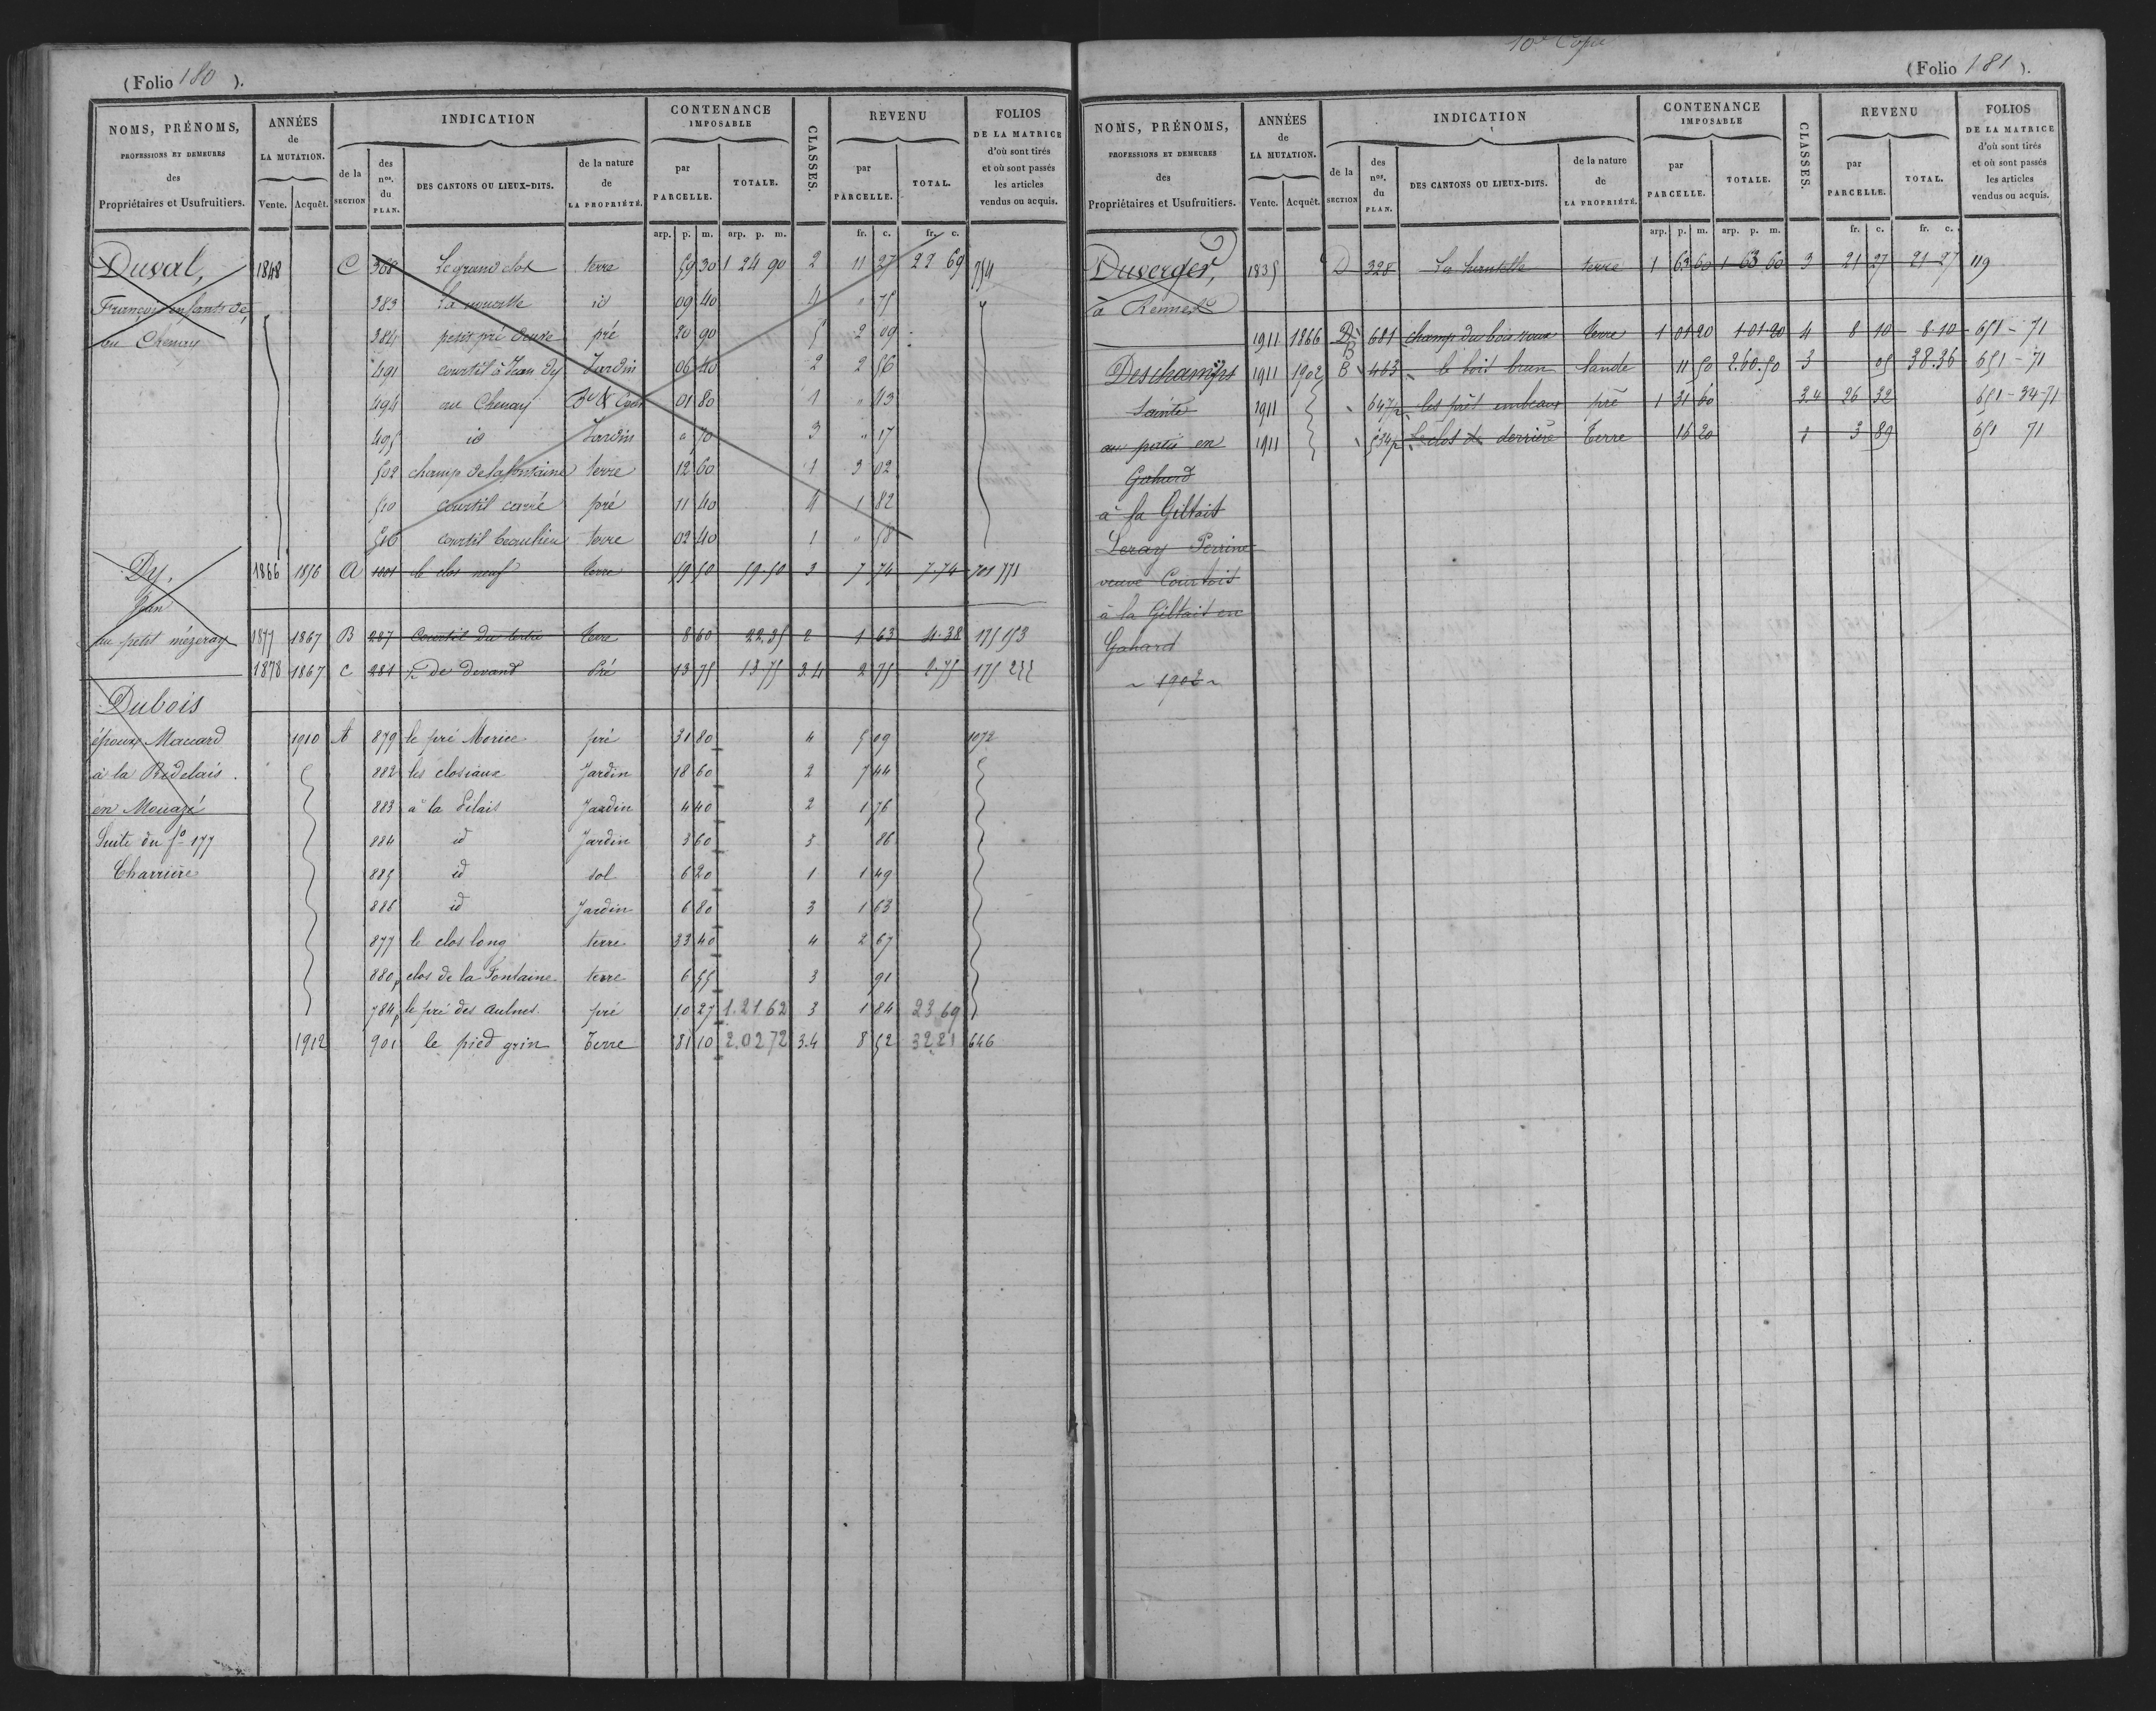 (Folio 180 ).
NOMS, PRÉNOMS,
PROFESSIONS ET DEMEURES
des
Propriétaires et Usufruitiers.
ANNÉES
de
LA MUTATION.
Vente. Acquêt.
INDICATION
de la
SECTION
des
nos.
du
PLAN.
DES CANTONS OU LIEUX-DITS.
de la nature
de
LA PROPRIÉTÉ.
CONTENANCE
IMPOSABLE
par
PARCELLE.
TOTALE.
CLASSES.
REVENU
par
PARCELLE.
TOTAL.
FOLIOS
DE LA MATRICE
d'où sont tirés
et où sont passés
les articles
vendus ou acquis.
arp. p. m. arp. p. m. fr. c. fr. c.
Duval, 1848 C 368 Le grand clos terre 59 30 1 24 90 2 11 27 22 69 254
François enfants de 383 La noueth id 09 40 4 " 75
au Chenay 384 petit pré Veuve pré 20 90 5 2 09
491 courtil à Jean Dy Jardin 06 40 2 2 56
494 au Chenay Bt & Cour 01 80 1 " 43
495 id Jardin " 70 3 " 17
502 champ de la fontaine terre 12 60 1 3 02
510 courtil carré pré 11 40 4 1 82
516 courtil beaulieu terre 02 40 1 " 58
Dy, 1866 1856 A 1001 le clos neuf terre 59 50 59.50 3 7 74 7.74 701 771
Jean
au petit mézeray 1877 1867 B 287 Courtil du tertre terre 8 60 22.35 2 1 63 4.38 175 153
1878 1867 C 281 p. De devant Pré 13 75 13 75 3.4 2 75 2.75 175 233
Dubois
époux Macard 1910 A 879 le pré Morice pré 31 80 4 5 09 1072
à la Bedelais 882 les closiaux Jardin 18 60 2 7 44
en Mouazé 883 à la Pilais Jardin 4 40 2 1 76
Suite du fo 177 884 id Jardin 3 60 3 86
Charrière 885 id sol 6 20 1 1 49
886 id Jardin 6 80 3 1 63
877 le clos long terre 33 40 4 2 67
880p clos de la Fontaine terre 6 55 3 91
784p le pré des aulnes pré 10 27 1.21 62 3 1 84 23 69
1912 901 le pied grin Terre 81 10 2.02 72 3.4 8 52 32 21 646
10e Copie
(Folio 181 ).
NOMS, PRÉNOMS,
PROFESSIONS ET DEMEURES
des
Propriétaires et Usufruitiers.
ANNÉES
de
LA MUTATION.
Vente. Acquêt.
INDICATION
de la
SECTION
des
nos.
du
PLAN.
DES CANTONS OU LIEUX-DITS.
de la nature
de
LA PROPRIÉTÉ.
CONTENANCE
IMPOSABLE
par
PARCELLE.
TOTALE.
CLASSES.
REVENU
par
PARCELLE.
TOTAL.
FOLIOS
DE LA MATRICE
d'où sont tirés
et où sont passés
les articles
vendus ou acquis.
arp. p. m. arp. p. m. fr. c. fr. c.
Duverger, 1835 D 328 La hantelle terre 1 63 60 1 63 60 3 21 27 21 27 119
à Rennes
1911 1866 D B 681 champ du bois roux terre 1 01 20 1.01.20 4 8 10 8.10 651 - 71
Deschamps 1911 1902 B 463 le bois brun lande 11 50 2.60.50 3 05 38.36 651 - 71
Sainte 1911 647p les prés embeaux pré 1 31 60 3.4 26 32 651 - 34-71
au pertis en 1911 534p Le clos de derrière Terre 16 20 1 3 89 651 71
Gahard
à la Giltais
Leray Perrine
veuve Courtois
à la Giltais en
Gahard
~ 1902 ~